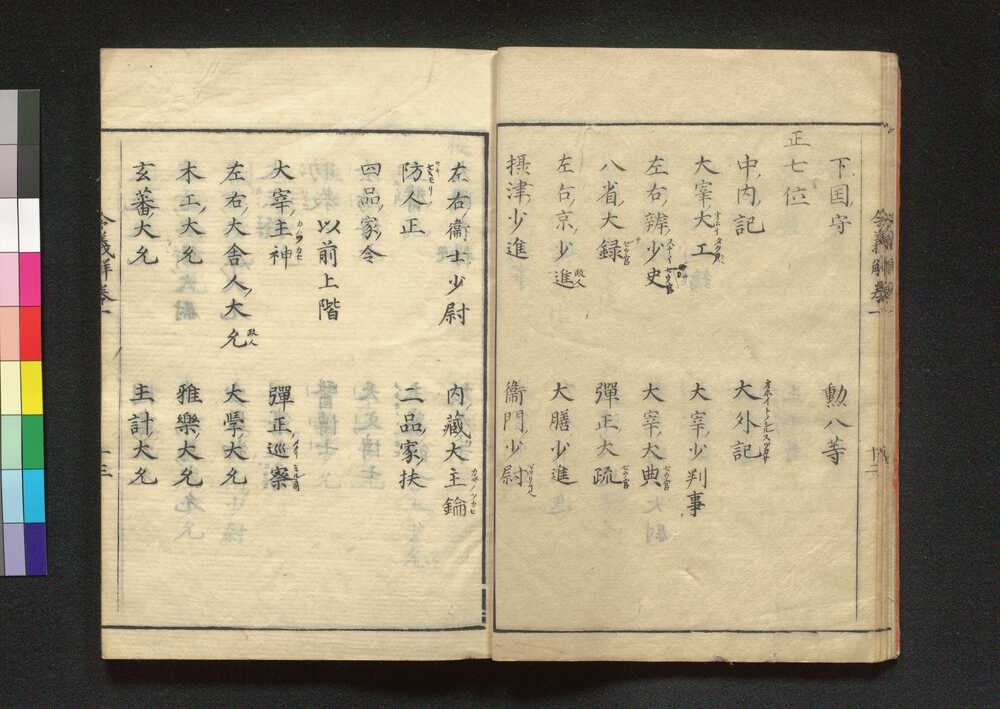 下国守 勲八等
正七位
中内記 大外記
大宰大工 大宰少判事
左右辨少史 大宰大典
八省大録 彈正大疏
左右京少進 大膳少進
摂津少進 衞門少尉
左右衞士少尉 内藏大主鑰
防人正 二品家扶
四品家令
以前上階
大宰主神 彈正巡察
左右大舎人大允 大學大允
木工大允 雅樂大允
玄蕃大允 主計大允